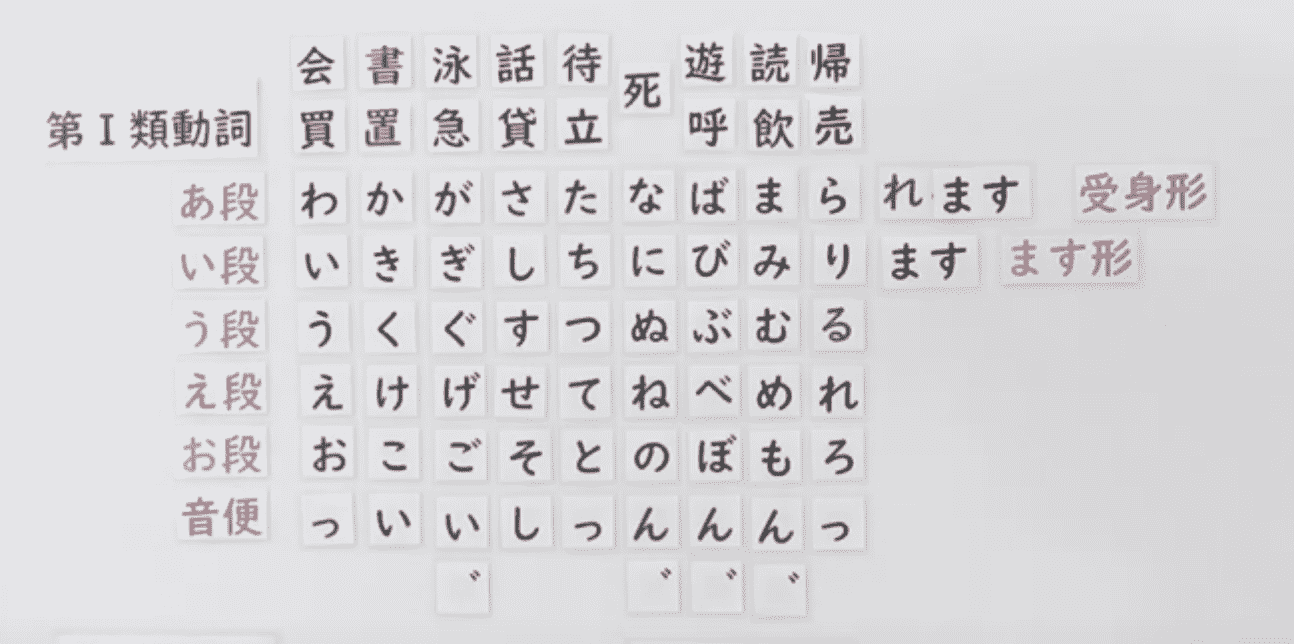 会 書 泳 話 待 死 遊 読 帰
第Ⅰ類動詞 買 置 急 貸 立 呼 飲 売
あ段 わ か が さ た な ば ま ら れ ます 受身形
い段 い き ぎ し ち に び み り ます ます形
う段 う く ぐ す つ ぬ ぶ む る
え段 え け げ せ て ね べ め れ
お段 お こ ご そ と の ぼ も ろ
音便 っ い い し っ ん ん ん っ
゛ ゛ ゛ ゛